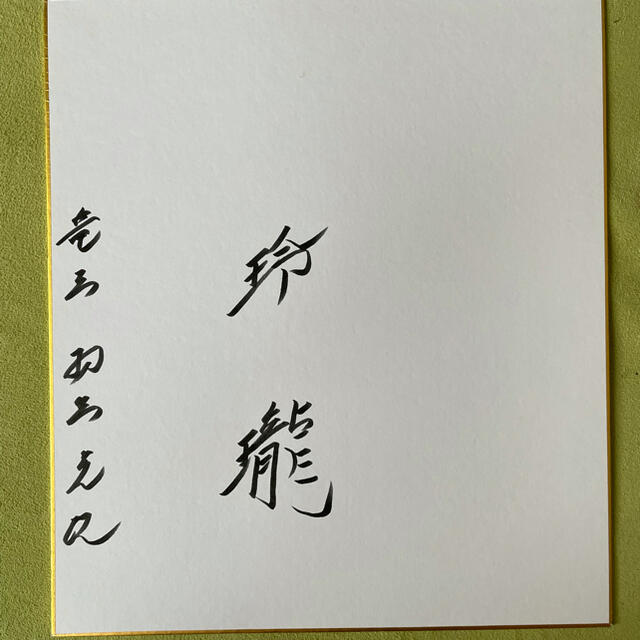 玲瓏
竜王 羽生善治